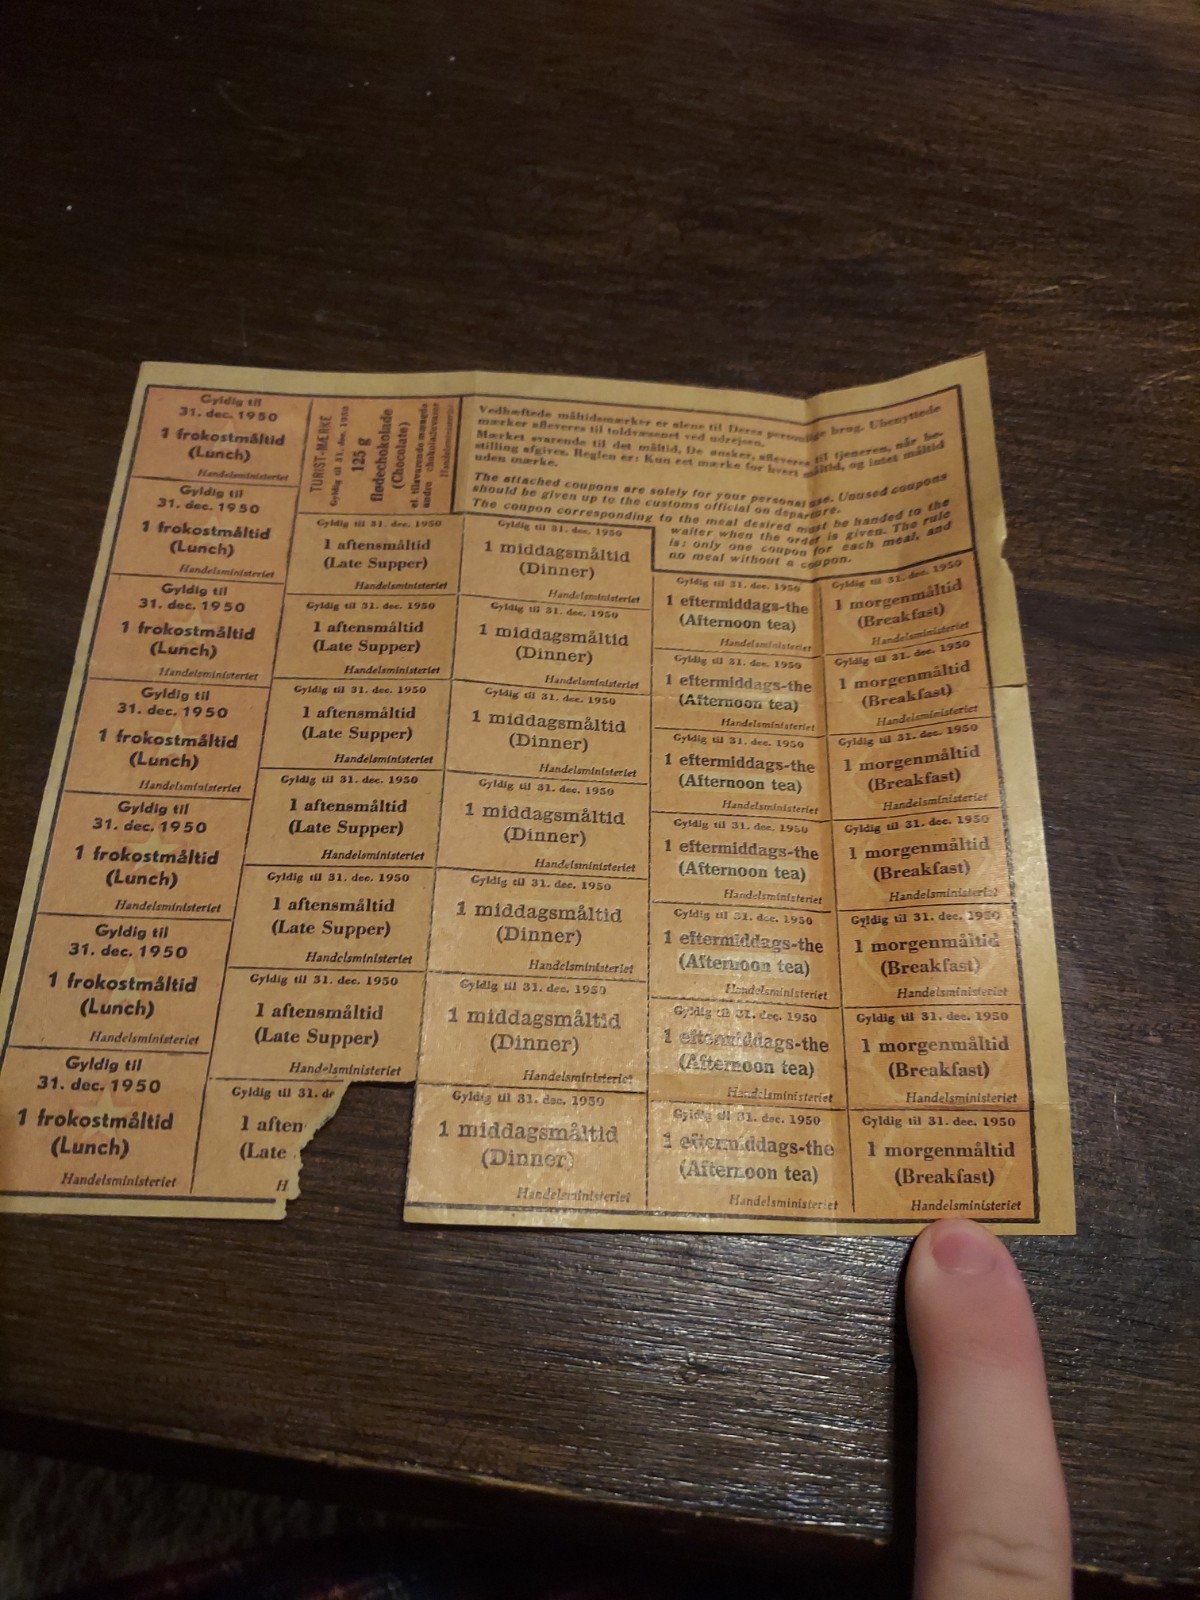 Gyldig til
31. dec. 1950
1 frokostmåltid
(Lunch)
Handelsministeriet
Gyldig til
31. dec. 1950
1 frokostmåltid
(Lunch)
Handelsministeriet
Gyldig til
31. dec. 1950
1 frokostmåltid
(Lunch)
Handelsministeriet
Gyldig til
31. dec. 1950
1 frokostmåltid
(Lunch)
Handelsministeriet
Gyldig til
31. dec. 1950
1 frokostmåltid
(Lunch)
Handelsministeriet
Gyldig til
31. dec. 1950
1 frokostmåltid
(Lunch)
Handelsministeriet
Gyldig til
31. dec. 1950
1 frokostmåltid
(Lunch)
Handelsministeriet
TURIST-MÆRKE
Gyldig til 31. dec. 1950
125 g
flødechokolade
(Chocolate)
el. tilsvarende mængde
andre chokoladevarer
Handelsministeriet
Gyldig til 31. dec. 1950
1 aftensmåltid
(Late Supper)
Handelsministeriet
Gyldig til 31. dec. 1950
1 aftensmåltid
(Late Supper)
Handelsministeriet
Gyldig til 31. dec. 1950
1 aftensmåltid
(Late Supper)
Handelsministeriet
Gyldig til 31. dec. 1950
1 aftensmåltid
(Late Supper)
Handelsministeriet
Gyldig til 31. dec. 1950
1 aftensmåltid
(Late Supper)
Handelsministeriet
Gyldig til 31. dec. 1950
1 aftensmåltid
(Late Supper)
Handelsministeriet
Gyldig til 31. de
1 aften
(Late
H
Vedhæftede måltidsmærker er alene til Deres personlige brug. Ubenyttede
mærker afleveres til toldvæsenet ved udrejsen.
Mærket svarende til det måltid, De ønsker, afleveres til tjeneren, når be-
stilling afgives. Reglen er: Kun eet mærke for hvert måltid, og intet måltid
uden mærke.
The attached coupons are solely for your personal use. Unused coupons
should be given up to the customs official on departure.
The coupon corresponding to the meal desired must be handed to the
waiter when the order is given. The rule
is: only one coupon for each meal, and
no meal without a coupon.
Gyldig til 31. dec. 1950
1 middagsmåltid
(Dinner)
Handelsministeriet
Gyldig til 31. dec. 1950
1 middagsmåltid
(Dinner)
Handelsministeriet
Gyldig til 31. dec. 1950
1 middagsmåltid
(Dinner)
Handelsministeriet
Gyldig til 31. dec. 1950
1 middagsmåltid
(Dinner)
Handelsministeriet
Gyldig til 31. dec. 1950
1 middagsmåltid
(Dinner)
Handelsministeriet
Gyldig til 31. dec. 1950
1 middagsmåltid
(Dinner)
Handelsministeriet
Gyldig til 31. dec. 1950
1 middagsmåltid
(Dinner)
Handelsministeriet
Gyldig til 31. dec. 1950
1 eftermiddags-the
(Afternoon tea)
Handelsministeriet
Gyldig til 31. dec. 1950
1 eftermiddags-the
(Afternoon tea)
Handelsministeriet
Gyldig til 31. dec. 1950
1 eftermiddags-the
(Afternoon tea)
Handelsministeriet
Gyldig til 31. dec. 1950
1 eftermiddags-the
(Afternoon tea)
Handelsministeriet
Gyldig til 31. dec. 1950
1 eftermiddags-the
(Afternoon tea)
Handelsministeriet
Gyldig til 31. dec. 1950
1 eftermiddags-the
(Afternoon tea)
Handelsministeriet
Gyldig til 31. dec. 1950
1 eftermiddags-the
(Afternoon tea)
Handelsministeriet
Gyldig til 31. dec. 1950
1 morgenmåltid
(Breakfast)
Handelsministeriet
Gyldig til 31. dec. 1950
1 morgenmåltid
(Breakfast)
Handelsministeriet
Gyldig til 31. dec. 1950
1 morgenmåltid
(Breakfast)
Handelsministeriet
Gyldig til 31. dec. 1950
1 morgenmåltid
(Breakfast)
Handelsministeriet
Gyldig til 31. dec. 1950
1 morgenmåltid
(Breakfast)
Handelsministeriet
Gyldig til 31. dec. 1950
1 morgenmåltid
(Breakfast)
Handelsministeriet
Gyldig til 31. dec. 1950
1 morgenmåltid
(Breakfast)
Handelsministeriet